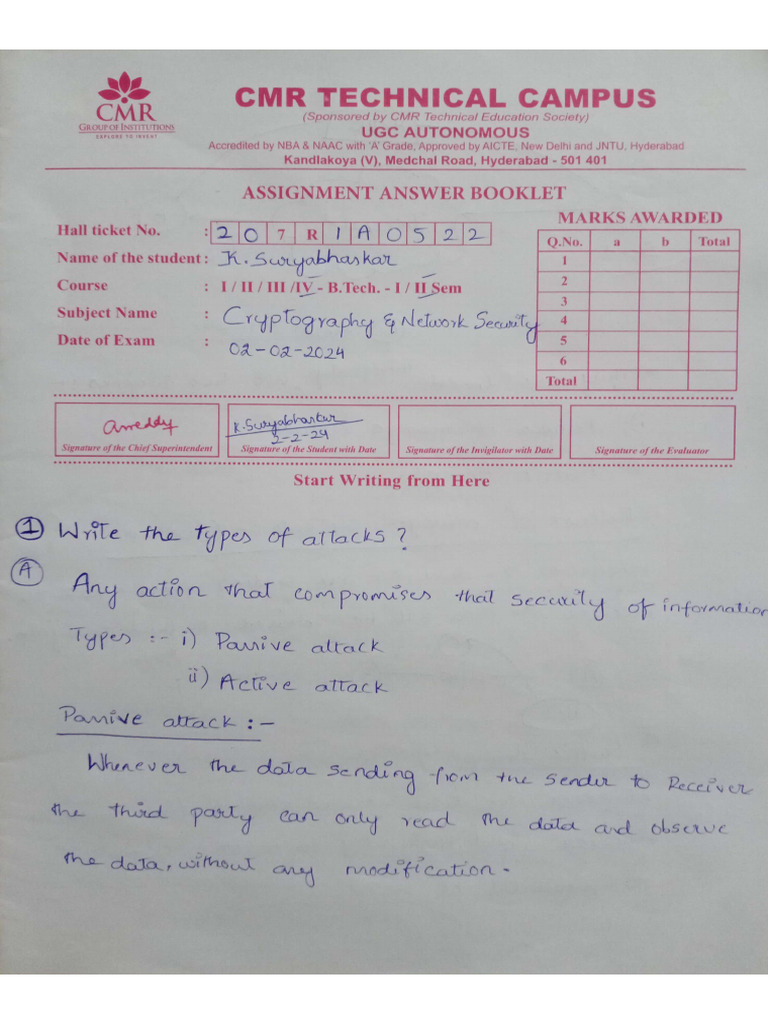 CMR
GROUP OF INSTITUTIONS
EXPLORE TO INVENT
CMR TECHNICAL CAMPUS
(Sponsored by CMR Technical Education Society)
UGC AUTONOMOUS
Accredited by NBA & NAAC with 'A' Grade, Approved by AICTE, New Delhi and JNTU, Hyderabad
Kandlakoya (V), Medchal Road, Hyderabad - 501 401
ASSIGNMENT ANSWER BOOKLET
Hall ticket No. : 2 0 7 R 1 A 0 5 2 2
Name of the student : K. Suryabhaskar
Course : I / II / III / IV - B.Tech. - I / II Sem
Subject Name : Cryptography & Network Security
Date of Exam : 02-02-2024
MARKS AWARDED
Q.No. a b Total
1
2
3
4
5
6
Total
K. Suryabhaskar
2-2-24
Signature of the Chief Superintendent
Signature of the Student with Date
Signature of the Invigilator with Date
Signature of the Evaluator
Start Writing from Here
1 Write the types of attacks?
A Any action that compromises that security of information
Types :- i) Passive attack
ii) Active attack
Passive attack :-
Whenever the data sending from the sender to Receiver
the third party can only read the data and observe
the data, without any modification.